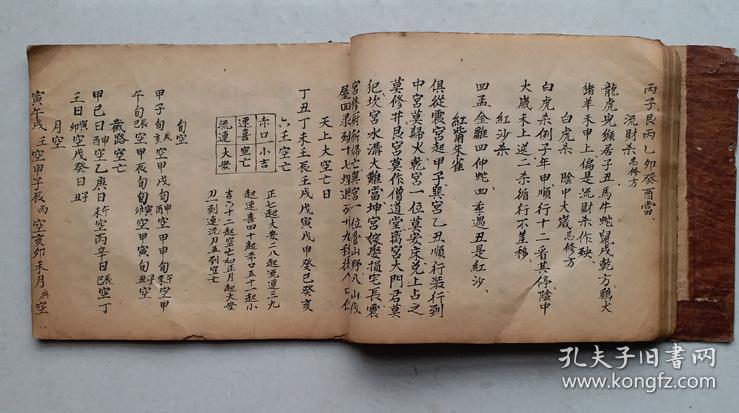 丙子艮丙乙卯癸酉當
流財杀忌修方
龍虎兎猴居子丑馬牛蛇鼠戌乾方鷄犬
猪羊未申上偏是流財杀作殃
白虎杀 陰中大嵗忌修方
白虎杀例子年申順行十二看其停陰中
大嵗未上逆二杀循行不差移
紅沙杀
四孟金雞四仲蛇四季遇丑是紅沙
紅嘴朱雀
俱從震宮起甲子巽宮乙丑順行裝行到
中宮莫歸火乾宮一位莫安床兌上占之
莫修井艮宮莫作僧道堂离宮大門君莫
犯坎宮水溝大難當坤宮嫁娶損宅長震
天上大空亡日
丁丑丁未壬辰壬戌戊寅戊申癸巳癸亥
六壬空亡
赤口 小吉
速喜 空亡
流連 大安
正七起大安二八起流連三九
起速喜四十起赤口五十一起小
吉六十二起空亡如正月起大安
刀一到連流刀五到空亡
旬空
甲子旬戌亥空甲戌旬申酉空甲申旬午未空甲
午旬辰巳空甲辰旬寅卯空甲寅旬子丑空
截路空亡
甲己日申酉空乙庚日午未空丙辛日辰巳空丁
壬日寅卯空戊癸日子丑
月空
寅午戌壬空申子辰丙空亥卯未月庚空
孔夫子旧书网
www.kongfz.com